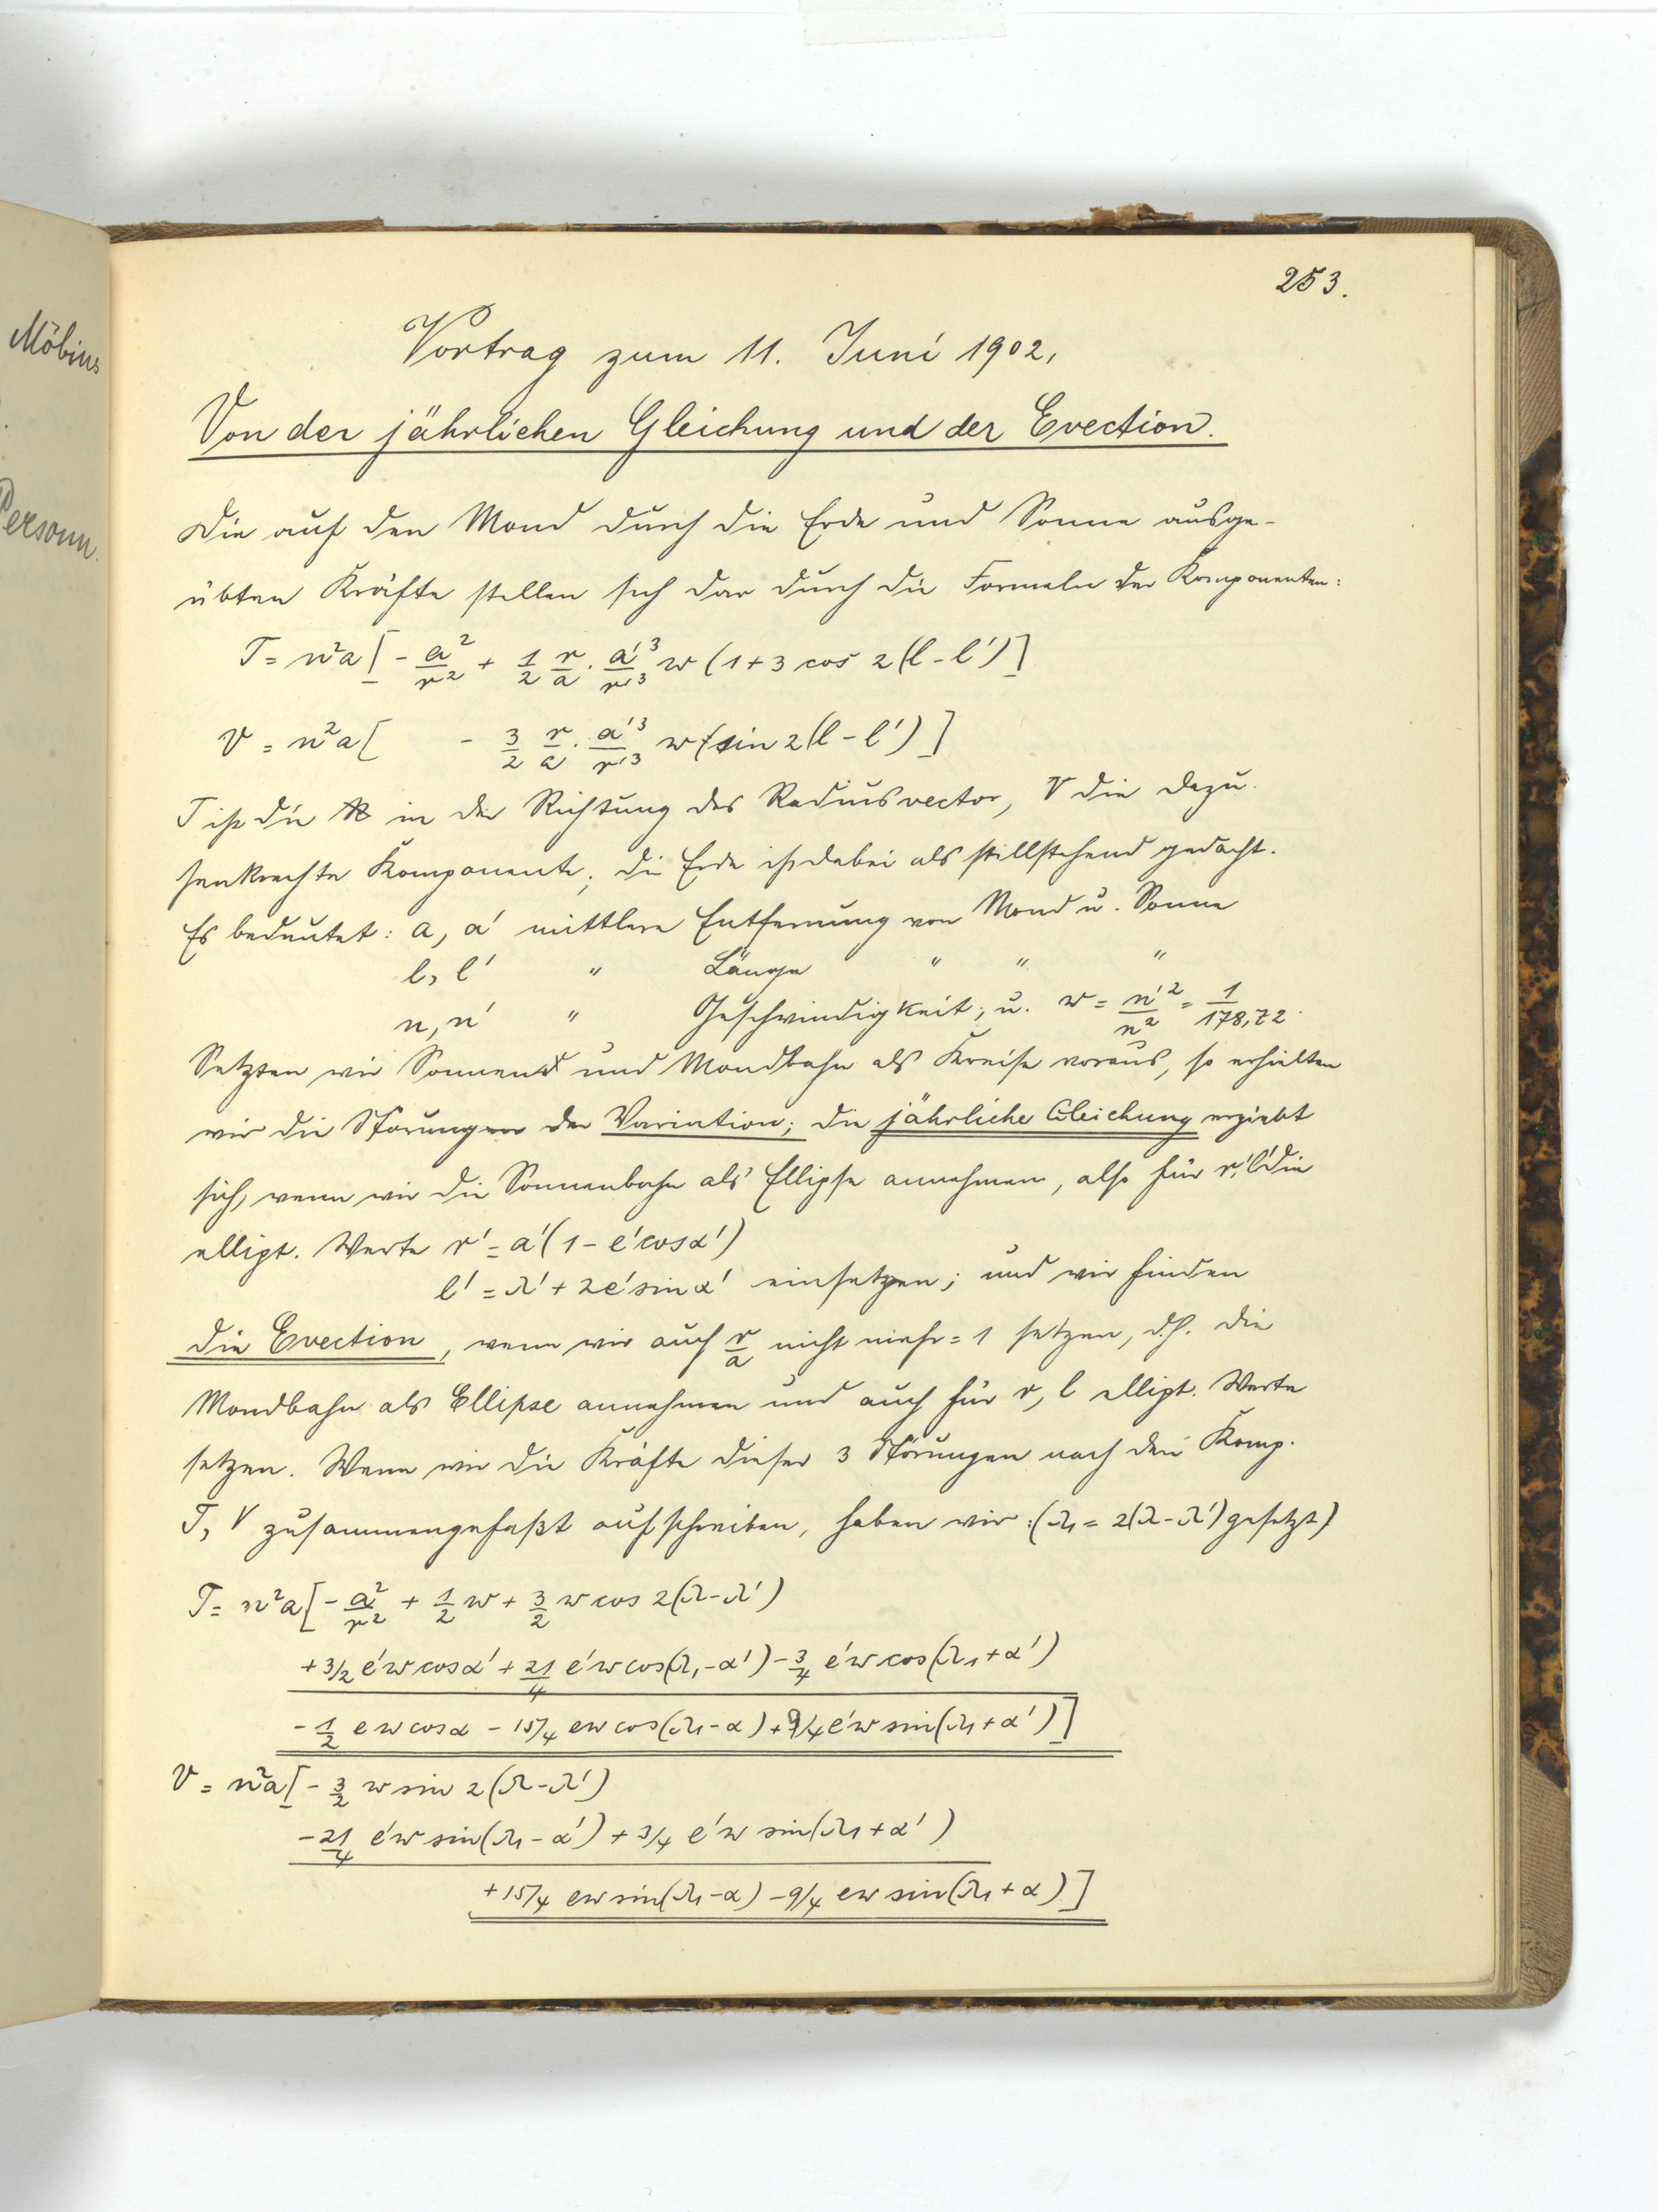 Möbius
Personn.
253.
Vortrag zum 11. Juni 1902.
Von der jährlichen Gleichung und der Evection.
Die auf den Mond durch die Erde und Sonne ausge-
übten Kräfte stellen sich dar durch die Formeln der Komponenten:
T = n²a [ - a²/r² + 1/2 r/a · a'³/r'³ w (1 + 3 cos 2(l - l') ]
V = n²a [ - 3/2 r/a · a'³/r'³ w sin 2(l - l') ]
T ist die in der Richtung des Radiusvector, V die dazu
senkrechte Komponente; die Erde ist dabei als stillstehend gedacht.
Es bedeutet: a, a' mittlere Entfernung von Mond u. Sonne
l, l' " Länge " " "
n, n' " Geschwindigkeit; u. w = n'²/n² = 1/178,72.
Setzten wir Sonnen und Mondbahn als Kreise voraus, so erhielten
wir die Störungen der Variation; die jährliche Gleichung ergiebt
sich, wenn wir die Sonnenbahn als Ellipse annehmen, also für r', l' die
ellipt. Werte r' = a'(1 - e' cos α')
l' = λ' + 2e' sin α' einsetzen; und wir finden
die Evection, wenn wir auch r/a nicht mehr = 1 setzen, d.h. die
Mondbahn als Ellipse annehmen und auch für r, l ellipt. Werte
setzen. Wenn wir die Kräfte dieser 3 Störungen nach den Komp.
T, V zusammengefaßt aufschreiben, haben wir: (λ₁ = 2(λ - λ') gesetzt)
T = n²a [ - a²/r² + 1/2 w + 3/2 w cos 2(λ - λ')
+ 3/2 e'w cos α' + 21/4 e'w cos(λ₁ - α') - 3/4 e'w cos(λ₁ + α')
- 1/2 e w cos α - 15/4 ew cos(λ₁ - α) + 9/4 e'w sin(λ₁ + α') ]
V = n²a [ - 3/2 w sin 2(λ - λ')
- 21/4 e'w sin(λ₁ - α') + 3/4 e'w sin(λ₁ + α')
+ 15/4 ew sin(λ₁ - α) - 9/4 ew sin(λ₁ + α) ]